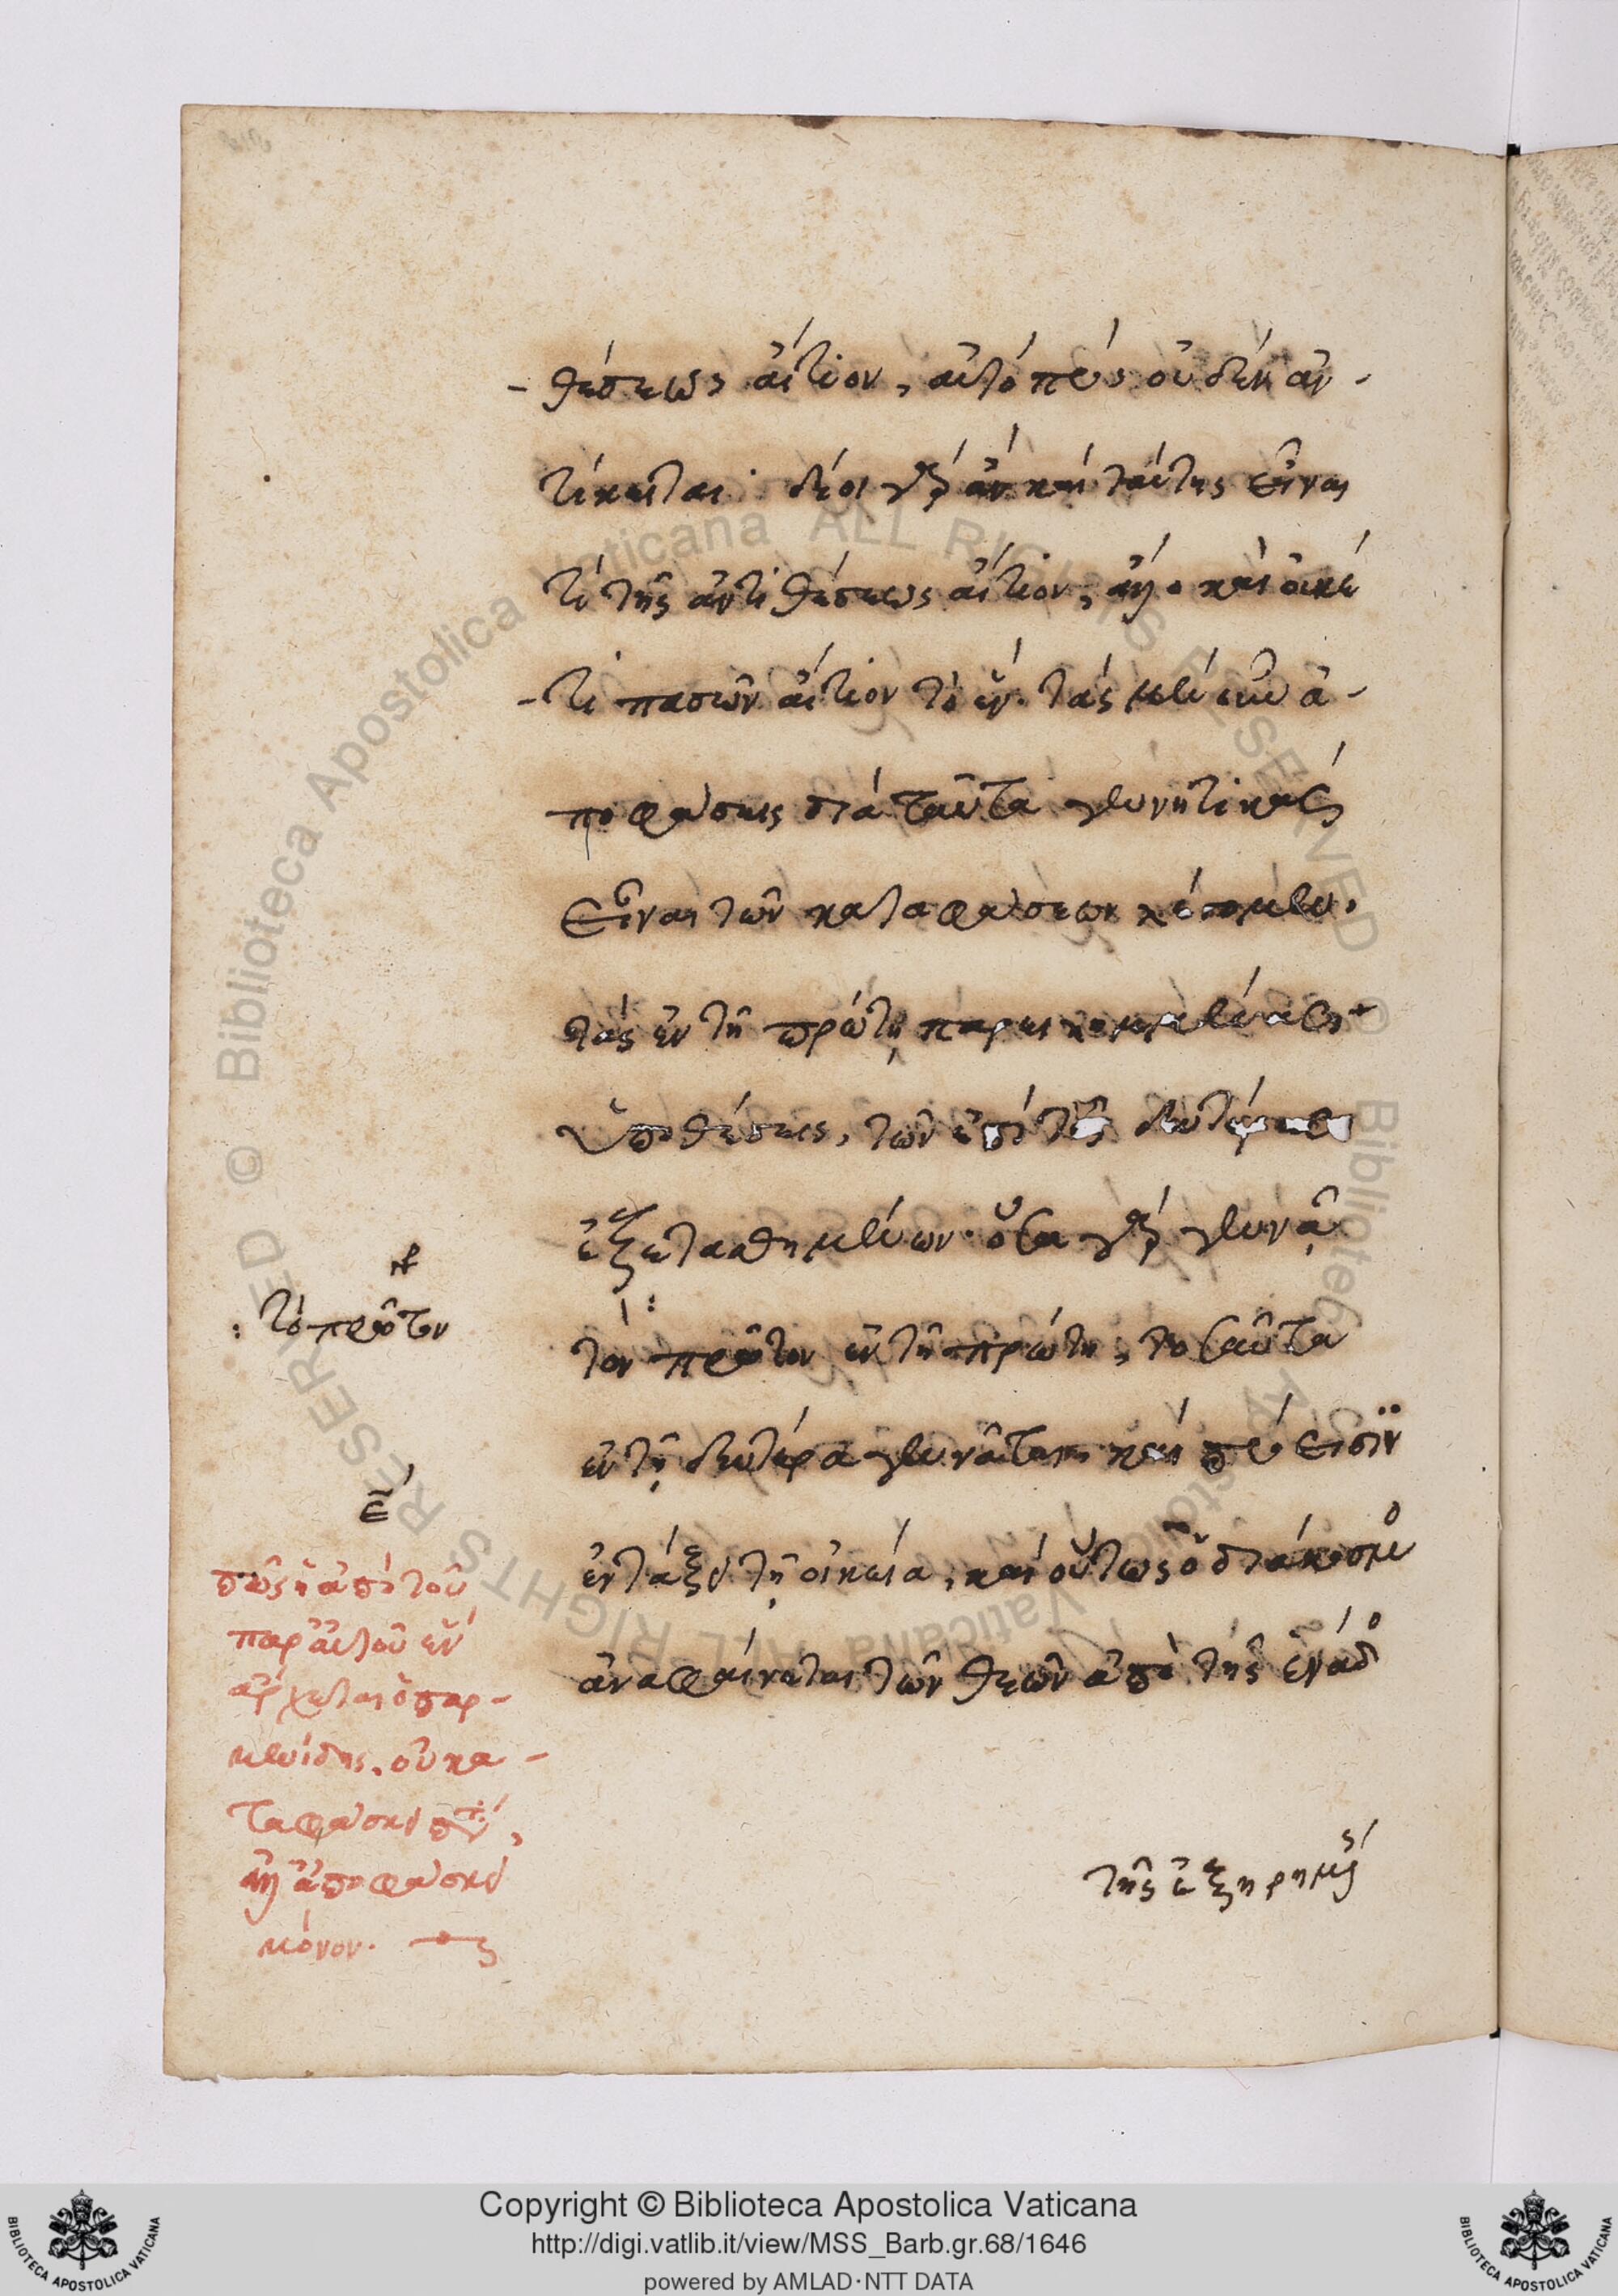 -θέσεως αἴτιον, αὐτό πρός οὐδέν ἀν-
τίκειται. δέοι γάρ ἄν καί ταύτης εἶναι
τί τῆς ἀντιθέσεως αἴτιον, ἀλλ' ο καὶ οὐκέ
-τι πασῶν αἴτιον τὸ ἕν. τάς μέν οὖν ἀ-
ποφάσεις διά ταῦτα γεννητικάς
εἶναι τῶν καταφάσεων λέγομεν.
τάς ἐν τῇ πρώτῃ παρειλημμένας
ὑποθέσεις, τῶν ἐπί τῆς δευτέρας
ἐξετασθημένων. ὅσα γάρ γεννᾷ
τόν πρῶτον ἐν τῇ πρώτῃ, τοσαῦτα
ἐν τῇ δευτέρᾳ γεννᾶται καί πρόεισιν
ἐν τάξει τῇ οἰκείᾳ, καί οὕτως ὁ διάκοσμο
ἀναφαίνεται τῶν θεῶν ἀπὸ τῆς ἑνάδο
τῆς ἐξῃρημένης
: τό πρῶτον
ε̄
πῶς ἢ ἀπό τοῦ
παρ' αὐτοῦ ἕν
ἄρχεται ὁ παρ-
μενίδης, οὐ κα-
ταφάσκει
ἀλλ' ἀποφάσκει
μόνον.
Copyright © Biblioteca Apostolica Vaticana
http://digi.vatlib.it/view/MSS_Barb.gr.68/1646
powered by AMLAD·NTT DATA
BIBLIOTECA APOSTOLICA VATICANA
BIBLIOTECA APOSTOLICA VATICANA
© Biblioteca Apostolica Vaticana ALL RIGHTS RESERVED
© Biblioteca Apostolica Vaticana ALL RIGHTS RESERVED